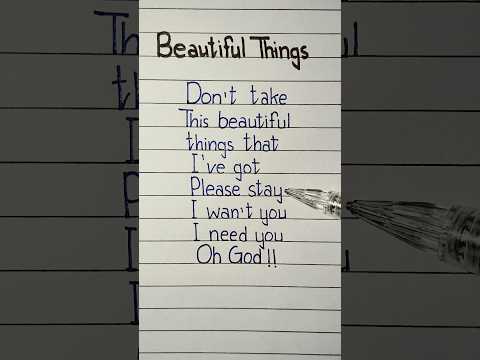 Beautiful Things
Don't take
This beautiful
things that
I've got
Please stay
I wan't you
I need you
Oh God!!